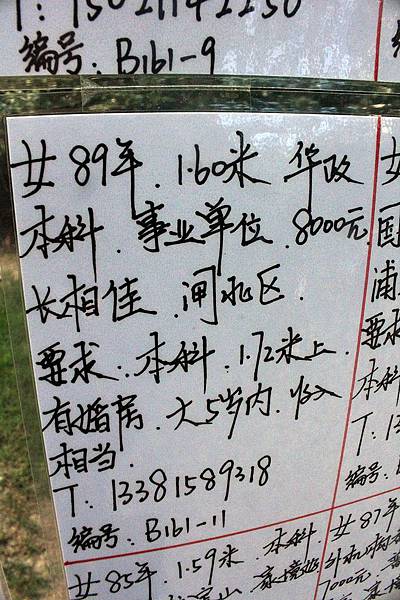 T: 15021142250
编号: B161-9
女 89年. 1.60米 华政
本科. 事业单位. 8000元.
长相佳. 闸北区.
要求: 本科. 1.72米上.
有婚房. 大5岁内. 收入
相当.
T: 13381589318
编号: B161-11
女 85年. 1.59米. 本科.
女
国
浦
要求
本科
T: 13
编号: B
女 87年
7000元.